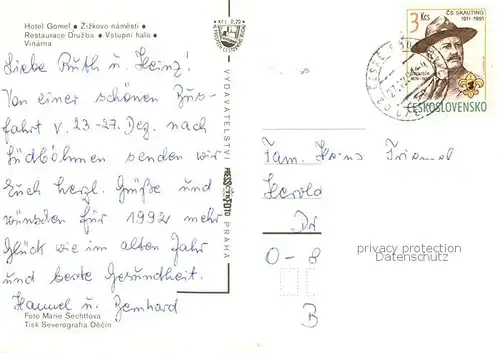 Hotel Gomel • Žižkovo náměstí •
Restaurace Družba • Vstupní hala •
Vinárna
Liebe Ruth u. Heinz!
Von einer schönen Bus-
fahrt v. 23.-27. Dez. nach
Südböhmen senden wir
Euch herzl. Grüße und
wünschen für 1992 mehr
Glück wie im alten Jahr
und beste Gesundheit.
Hannel u. Bernhard
Foto Marie Šechtlová
Tisk Severografia Děčín
Kčs 0,20
VYDAVATELSTVÍ PRESSFOTO PRAHA
3 Kčs
ČS. SKAUTING
1911-1991
ČESKOSLOVENSKO
Fam. Heinz
Dr
O-8
B
privacy protection
Datenschutz